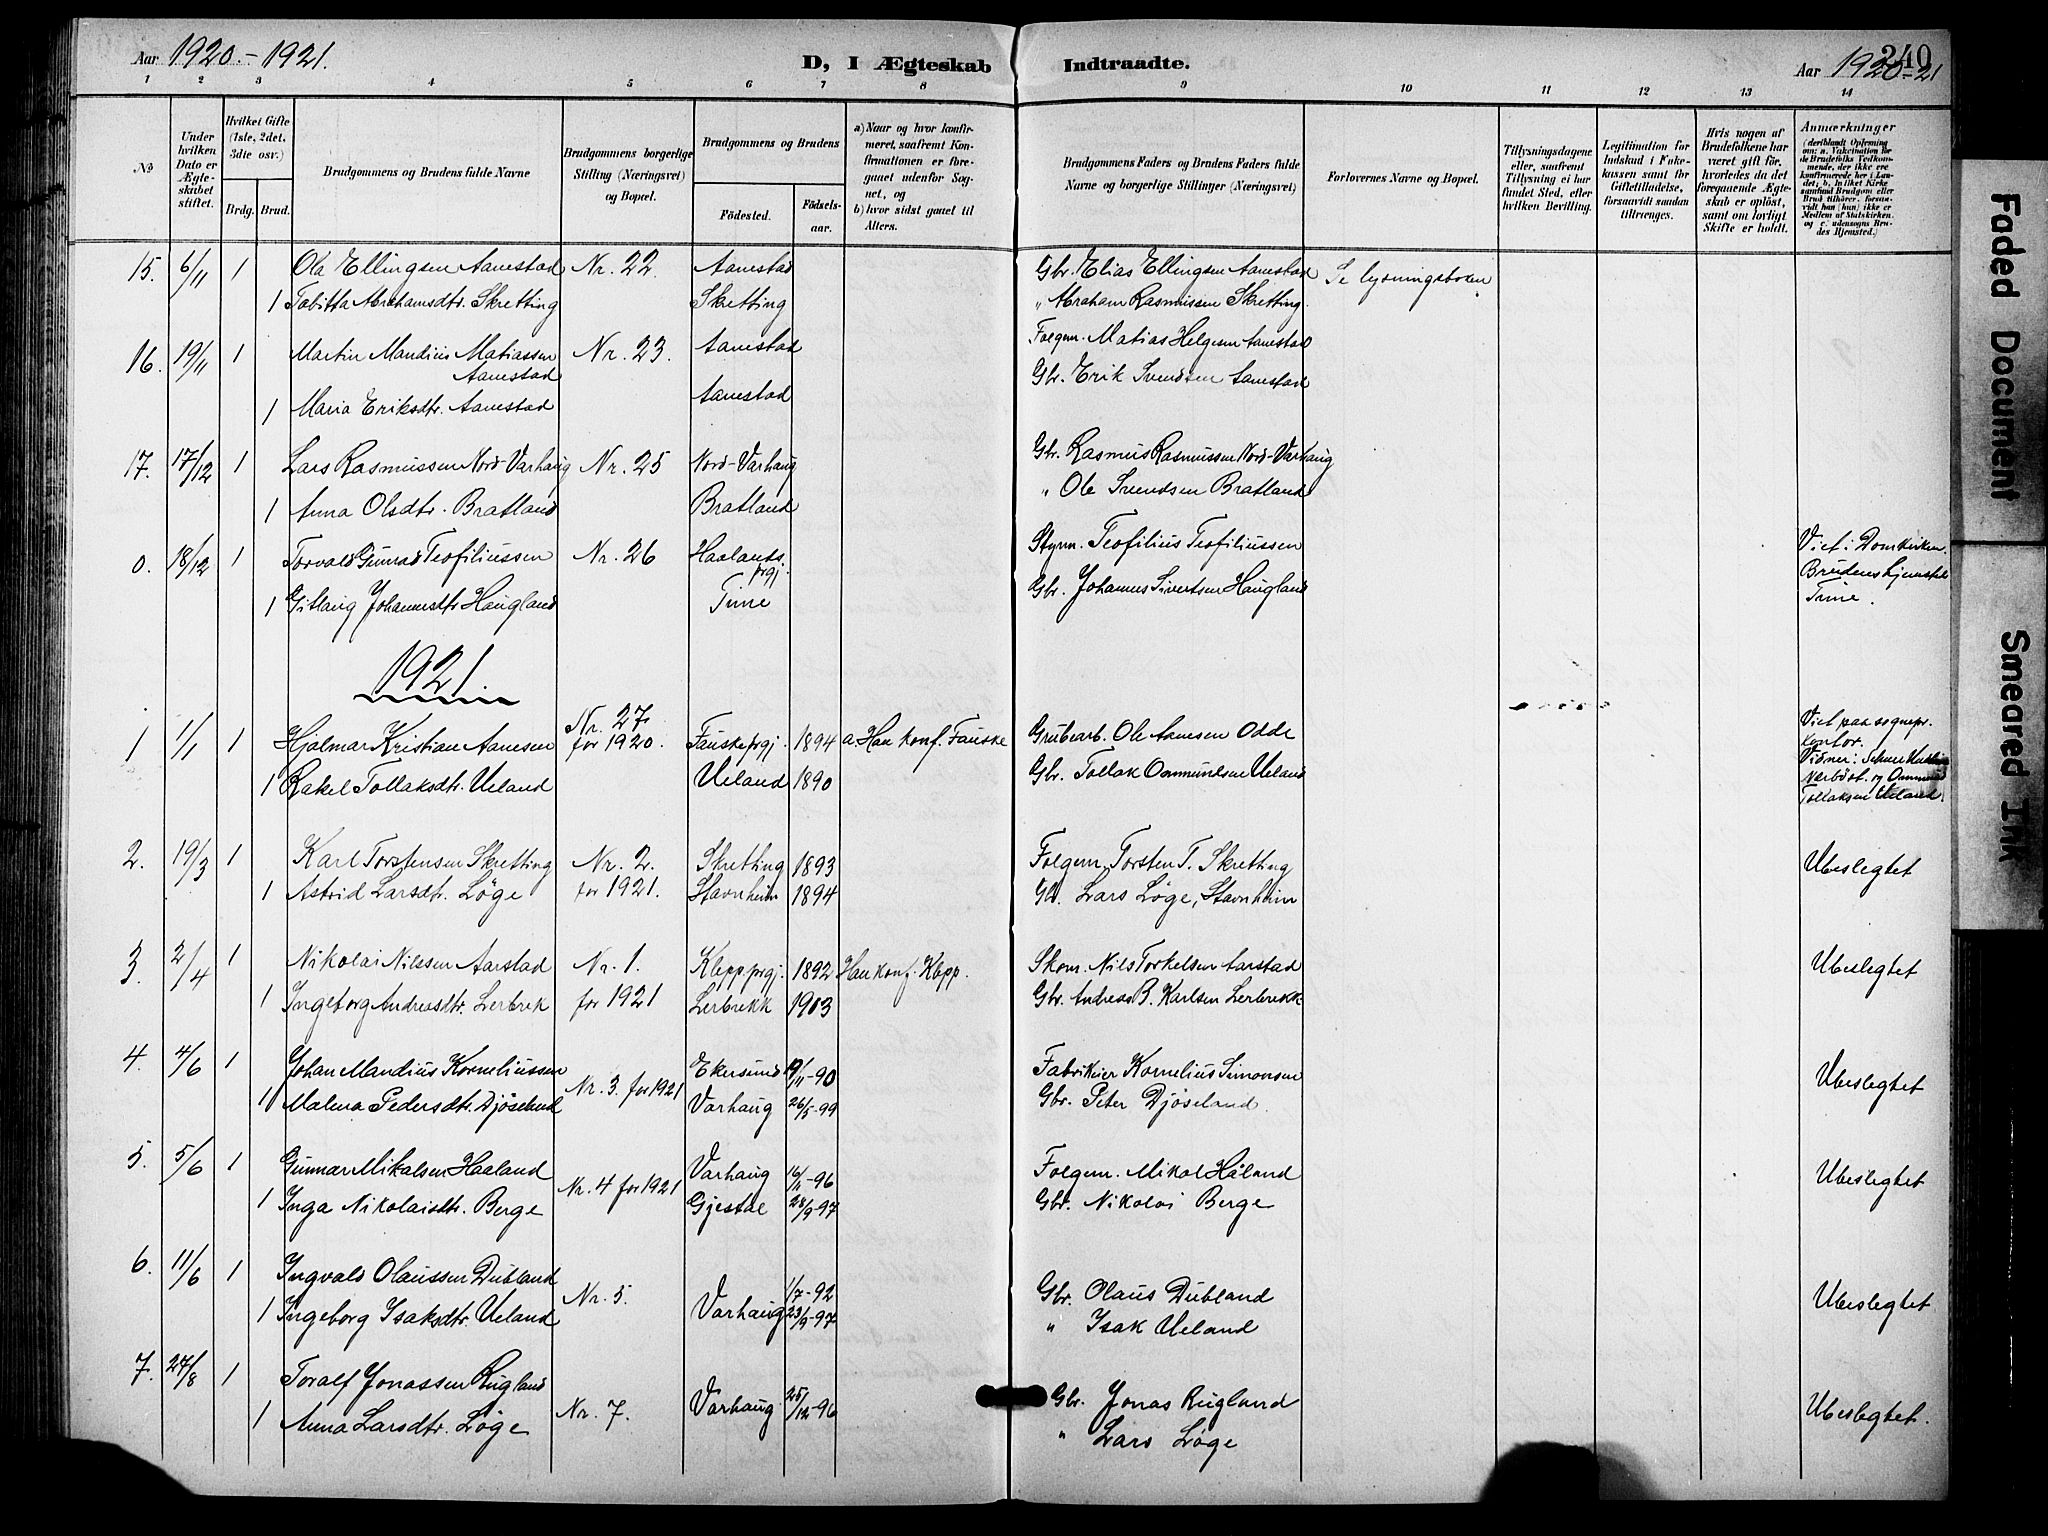 Aar 1920.-1921. D, I Ægteskab Indtraadte. Aar 1920-21 240
1 2 3 4 5 6 7 8 9 10 11 12 13 14
No
Under hvilken Dato er Ægteskabet stiftet.
Hvilket Gifte (1ste, 2det, 3dte osv.)
Brdg. Brud.
Brudgommens og Brudens fulde Navne
Brudgommens borgerlige Stilling (Næringsvei) og Bopæl.
Brudgommens og Brudens
Fødested. Fødselsaar.
a) Naar og hvor konfirmeret, saafremt Konfirmationen er foregaaet udenfor Sognet, og
b) hvor sidst gaaet til Alters.
Brudgommens Faders og Brudens Faders fulde Navne og borgerlige Stillinger (Næringsvei)
Forlovernes Navne og Bopæl.
Tillysningsdagene eller, saafremt Tillysning ei har fundet Sted, efter hvilken Bevilling.
Legitimation for Indskud i Enkekassen samt for Giftetilladelse, forsaavidt saadan tiltrænges.
Hvis nogen af Brudefolkene har været gift før, hvorledes da det foregaaende Ægteskab er opløst, samt om lovligt Skifte er holdt.
Anmærkninger
15. 6/11 1 Ola Ellingsen Aanestad Nr. 22. Aanestad Gbr. Elias Ellingsen Aanestad Se lysningsboken
1 Tabitta Abrahamsdtr. Skretting Skretting " Abraham Rasmussen Skretting.
16. 19/11 1 Martin Mandius Matiassen Aanestad Nr. 23. Aanestad Folgem. Matias Helgesen Aanestad
1 Maria Eriksdtr. Aanestad Aanestad Gbr. Erik Svendsen Aanestad
17. 17/12 1 Lars Rasmussen Nord-Varhaug Nr. 25 Nord-Varhaug Gbr. Rasmus Rasmussen Nord-Varhaug
1 Anna Olsdtr. Bratland Bratland " Ole Svendsen Bratland
0. 18/12 1 Torvald Gunval Teofiliussen Nr. 26 Haalands prgj. Styrm. Teofilius Teofiliussen Viet i Domkirken.
1 Gitlaug Johannesdtr Haugland Time Gbr. Johannes Sivertsen Haugland Brudens hjemsted Time.
1921
1 1/1 1 Hjalmar Kristian Aanesen Nr. 27 for 1920. Fauske prgj. 1894 a. Han konf. Fauske Grubearb. Ole Aanesen Odde Viet paa sognepr. kontor.
1 Rakel Tollaksdtr. Ueland Ueland 1890 Gbr. Tollak Ommundsen Ueland Vidner: Nærbø st. og Ommund Tollaksen Ueland.
2. 19/3 1 Karl Torstensen Skretting Nr. 2. Skretting 1893 Folgem. Torsten T. Skretting Ubeslegtet
1 Astrid Larsdtr. Löge for 1921. Stavnheim 1894 Gbr. Lars Löge, Stavnheim
3. 2/4 1 Nikolai Nilssen Aarstad Nr. 1. Klepp prgj. 1892 Han konf. Klepp. Skom. Nils Torkelsen Aarstad Ubeslegtet
1 Ingeborg Andreasdtr. Lerbrek for 1921 Lerbrekk 1903 Gbr. Andreas B. Karlsen Lerbrekk
4. 4/6 1 Johan Mandius Korneliussen Nr. 3. for 1921 Ekersund 19/11-90 Fabrikeier Kornelius Simonsen Ubeslegtet
1 Malena Pedersdtr. Djöseland Varhaug 26/5-99 Gbr. Peter Djöseland.
5. 5/6 1 Gunnar Mikalsen Haaland Nr. 4 for 1921 Varhaug 16/11-96 Folgem. Mikal Håland Ubeslegtet
1 Inga Nikolaisdtr. Berge Gjestal 28/9-97 Gbr. Nikolai Berge
6. 11/6 1 Ingvald Olaussen Dubland Nr. 5. Varhaug 1/7-92 Gbr. Olaus Dubland Ubeslegtet
1 Ingeborg Isaksdtr. Ueland 23/9-97 " Isak Ueland
7. 27/8 1 Toralf Jonassen Rugland Nr. 7. Varhaug 25/12-96 Gbr. Jonas Rugland Ubeslegtet.
1 Anna Larsdtr. Löge " Lars Löge
Faded Document
Smeared Ink